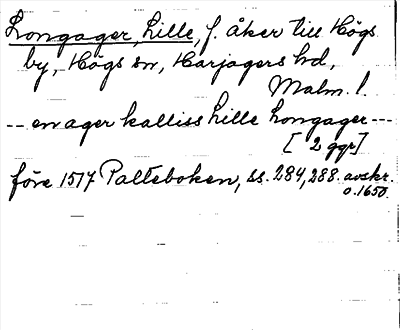 Longager, Lille, f. åker till Högs
by, Högs sn, Harjagers hd,
Malm. l.
-- en ager kalliss Lille Longager ---
[2 ggr]
före 1517 Palteboken, ss. 284, 288. avskr.
o. 1650.